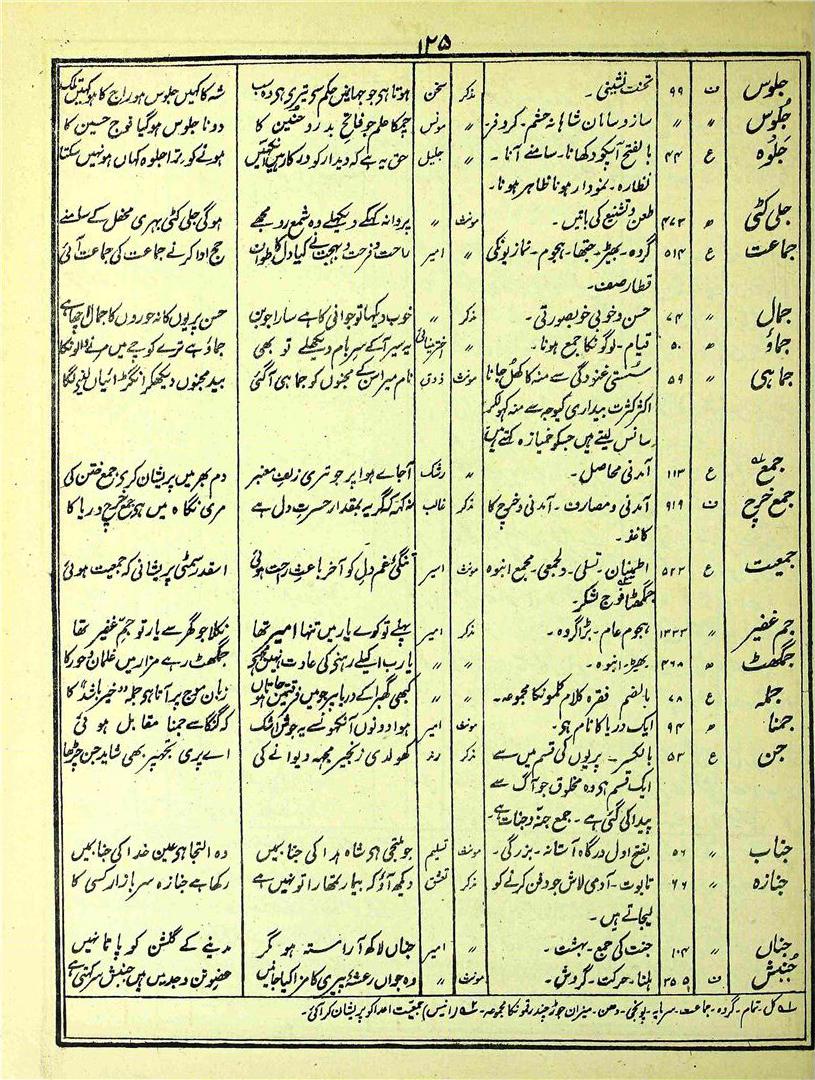 ۱۲۵
جلوس ف ۹۹ تخت نشینی۔ مذکر سخن ہوتا ہی جو جہاں میں حکم سو تیری ہی وہ سب شہ کا کہیں جلوس ہو راج کا ہو کہیں تلک
جُلوس 〃 〃 ساز و سامان شاہانہ حشم۔ کروفر 〃 مونس چمکا علم جو فاتح بدر و حنین کا دونا جلوس ہوگیا فوج حسین کا
جَلوَہ ع ۴۴ بالفتح آپکو دکھانا۔ سامنے آنا۔ 〃 جلیل حق یہ ہے کہ دیدار کو درکار ہیں آنکھیں ہونے کو ترا جلوہ کہاں ہو نہیں سکتا
نظارہ۔ نمودار ہونا ظاہر ہونا۔
جلی کٹی ھ ۴۷۳ طعن و تشنیع کی باتیں۔ مونث 〃 پروانہ کہکے دیکھلے وہ شمع رو مجھے ہوگی جلی کٹی بہری محفل کے سامنے
جماعت ع ۵۱۴ گروہ۔ بھیڑ۔ جتھا۔ ہجوم۔ نمازیونکی 〃 امیر راحت و فرحت و بہجت نے کیا دل کا طواف حج ادا کرنے جماعت کی جماعت آئی
قطار صف۔
جمال 〃 ۷۴ حسن و خوبی خوبصورتی۔ مذکر 〃 خوب دیکھا تو جوانی کا ہے سارا جوبن حسن پریوں کا نہ حوروں کا جمال اچھا ہے
جماؤ ھ ۵۰ قیام۔ لوگونکا جمع ہونا۔ 〃 اختر مینائی یہ سیر آکے سر بام دیکھلے تو بھی جماؤ ہے ترے کوچے میں مرنے والونکا
جماہی 〃 ۵۹ سستی غنودگی سے منہ کا کھل جانا مونث ذوق نام میرا سن کے مجنوں کو جماہی آگئی بید مجنوں دیکھکر انگڑائیاں لینے لگا
اکثر کثرت بیداری کیوجہ سے منہ کھولکر
سانس لیتے ہیں جسکو خمیازہ کہتے ہیں
جمع ع ۱۱۳ آمدنی محاصل۔ 〃 رشک آجاے ہوا پر جو تری زلف معنبر دم بھر میں پریشان کری جمع ختن کی
جمع خرچ ف ۹۱۹ آمدنی و مصارف۔ آمدنی و خرچ کا مذکر غالب نہ کہہ کہ گریہ بمقدار حسرت دل ہے مری نگاہ میں ہی جمع خرچ دریا کا
کاغذ۔
جمعیت ع ۵۲۳ اطمینان۔ تسلی۔ دلجمعی۔ مجمع انبوہ مونث امیر تنگیٔ غم دل کو آخر باعث راحت ہوئی اسقدر سمٹی پریشانی کہ جمعیت ہوئی
جگھٹا فوج لشکر۔
جم غفیر 〃 ۱۳۳۳ ہجوم عام۔ بڑا گروہ۔ مذکر امیر پہلے تو کوے یار میں تنہا امیر تھا نکلا جو گھر سے یار تو جم غفیر تھا
جمگھٹ ھ ۴۶۸ بھیڑ۔ انبوہ۔ 〃 〃 یارب اکیلے رہنے کی عادت نہیں مجھکو جمگھٹ رہے مزار میں غلمان و حور کا
جملہ ع ۷۸ بالضم فقرہ کلام کلمونکا مجموعہ۔ 〃 〃 کبھی گھبرا کے دریا پر جو میں فرقت میں جاتا ہوں زبان موج پر آتا ہو جملہ خیر باشد کا
جمنا ھ ۹۴ ایک دریا کا نام ہی۔ مونث امیر ہوا دونوں آنکھوں سے یہ جوش اشک کہ گنگا سے جمنا مقابل ہوئی
جن ع ۵۳ بالکسر۔ پریوں کی قسم میں سے مذکر رند کھولدی زنجیر مجھہ دیوانے کی اے پری تجھپر بھی شاید جن چڑھا
ایک قسم ہی وہ مخلوق جو آگ سے
پیدا کی گئی ہے۔ جمع جنہ و جنات ہے۔
جناب 〃 ۵۶ بفتح اول درگاہ آستانہ۔ بزرگی۔ مونث تسلیم جو ملتجی ہی شاہ ہدا کی جناب میں وہ التجا ہی عین خدا کی جناب میں
جنازہ 〃 ۶۶ تابوت۔ آدمی لاش جو دفن کرنے کو مذکر تعشق دیکھ آؤ کہ بیمار تمھارا تو نہیں ہے رکھا ہے جنازہ سر بازار کسی کا
لیجاتے ہیں۔
جناں 〃 ۱۰۴ جنت کی جمع۔ بہشت۔ 〃 امیر جناں لاکھ آراستہ ہو مگر مدینے کے گلشن کو پاتا نہیں
جُنبش ف ۳۵۵ ہلنا۔ حرکت۔ گردش۔ مونث 〃 وہ جواں رعشۂ پیری کا مزا کیا جانیں عضو تن وجد میں ہیں جنبش سر کہتی ہے
۱؎ کل۔ تمام۔ گروہ۔ جماعت۔ سرمایہ۔ پونجی۔ دھن۔ میزان جوڑ چند رقونکا مجموعہ۔ ۲؎ (انیس) جمعیت اعدا کو پریشان کر آئی۔